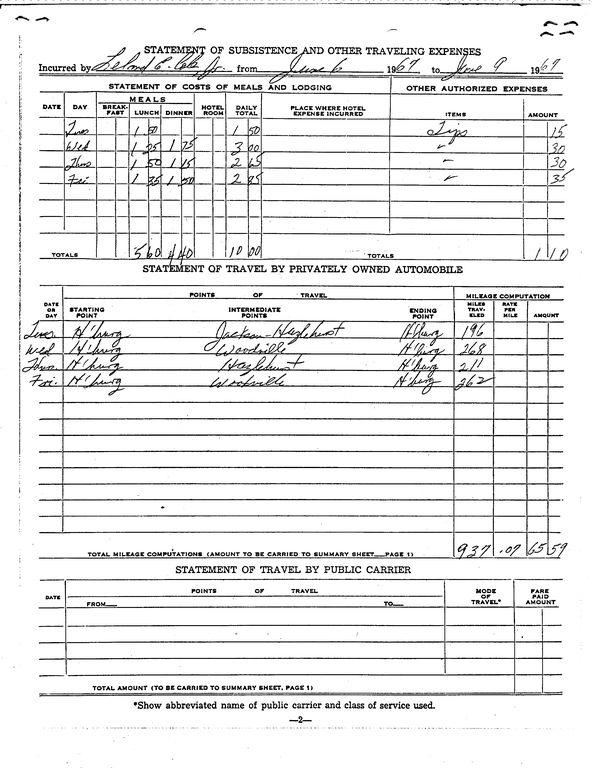 STATEMENT OF SUBSISTENCE AND OTHER TRAVELING EXPENSES
Incurred by Leland E. Cole Jr. from June 6 1967 to June 9 1967
STATEMENT OF COSTS OF MEALS AND LODGING OTHER AUTHORIZED EXPENSES
DATE DAY MEALS BREAK-FAST LUNCH DINNER HOTEL ROOM DAILY TOTAL PLACE WHERE HOTEL EXPENSE INCURRED ITEMS AMOUNT
Tues 1 50 1 50 Tips 15
Wed 1 25 1 75 3 00 " 30
Thurs 1 50 1 15 2 65 " 30
Fri. 1 35 1 50 2 85 " 35
TOTALS 5 60 4 40 10 00 TOTALS 1 10
STATEMENT OF TRAVEL BY PRIVATELY OWNED AUTOMOBILE
POINTS OF TRAVEL MILEAGE COMPUTATION
DATE OR DAY STARTING POINT INTERMEDIATE POINTS ENDING POINT MILES TRAV-ELED RATE PER MILE AMOUNT
Tues H'burg Jackson-Hazlehurst H'burg 196
Wed H'burg Woodville H'burg 268
Thurs. H'burg Hazlehurst H'burg 211
Fri. H'burg Woodville H'burg 262
TOTAL MILEAGE COMPUTATIONS (AMOUNT TO BE CARRIED TO SUMMARY SHEET__PAGE 1) 937 .07 65 59
STATEMENT OF TRAVEL BY PUBLIC CARRIER
DATE POINTS OF TRAVEL MODE OF TRAVEL* FARE PAID AMOUNT
FROM__ TO__
TOTAL AMOUNT (TO BE CARRIED TO SUMMARY SHEET, PAGE 1)
*Show abbreviated name of public carrier and class of service used.
—2—